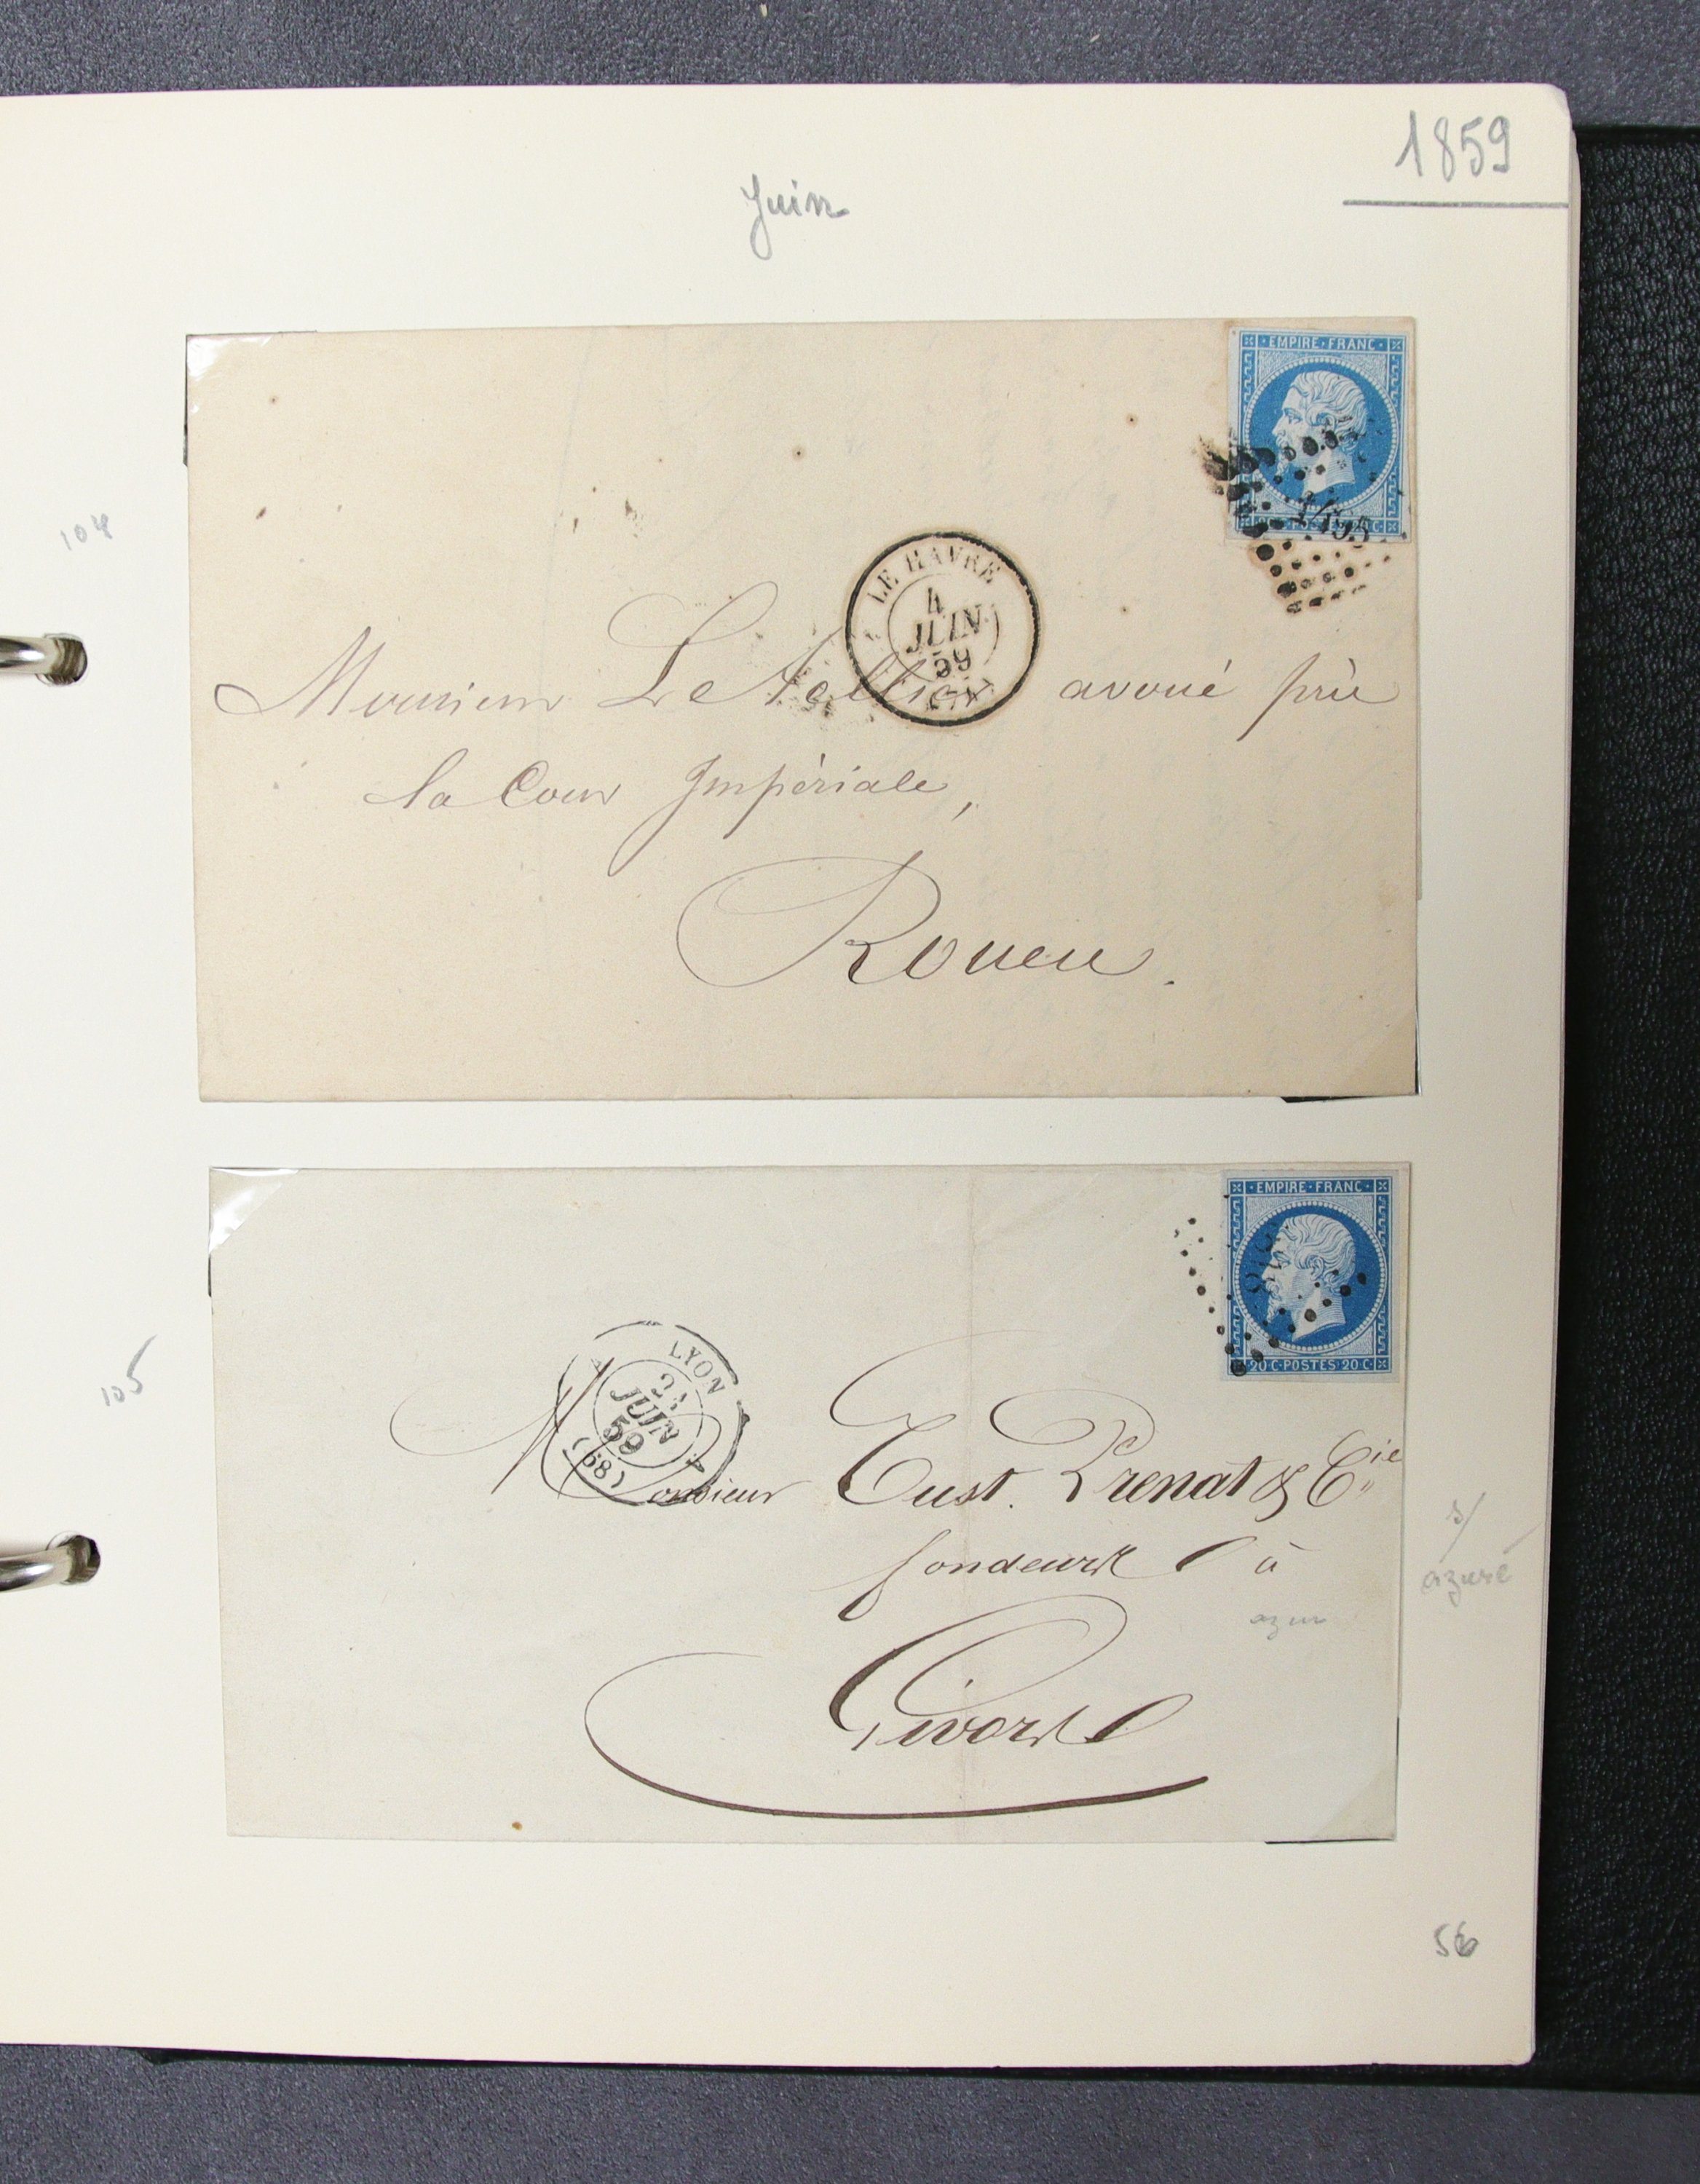 1859
Juin
EMPIRE·FRANC·
1495
104
LE HAVRE
4
JUIN
59
Monsieur Le Tellier avoué près
la Cour Impériale,
Rouen.
EMPIRE·FRANC·
20 C·POSTES·20 C·
LYON
JUIN
59
(68)
105
Monsieur Eust. Prenat & Cie
fondeurs à
azur
Givors
s/
azuré
56